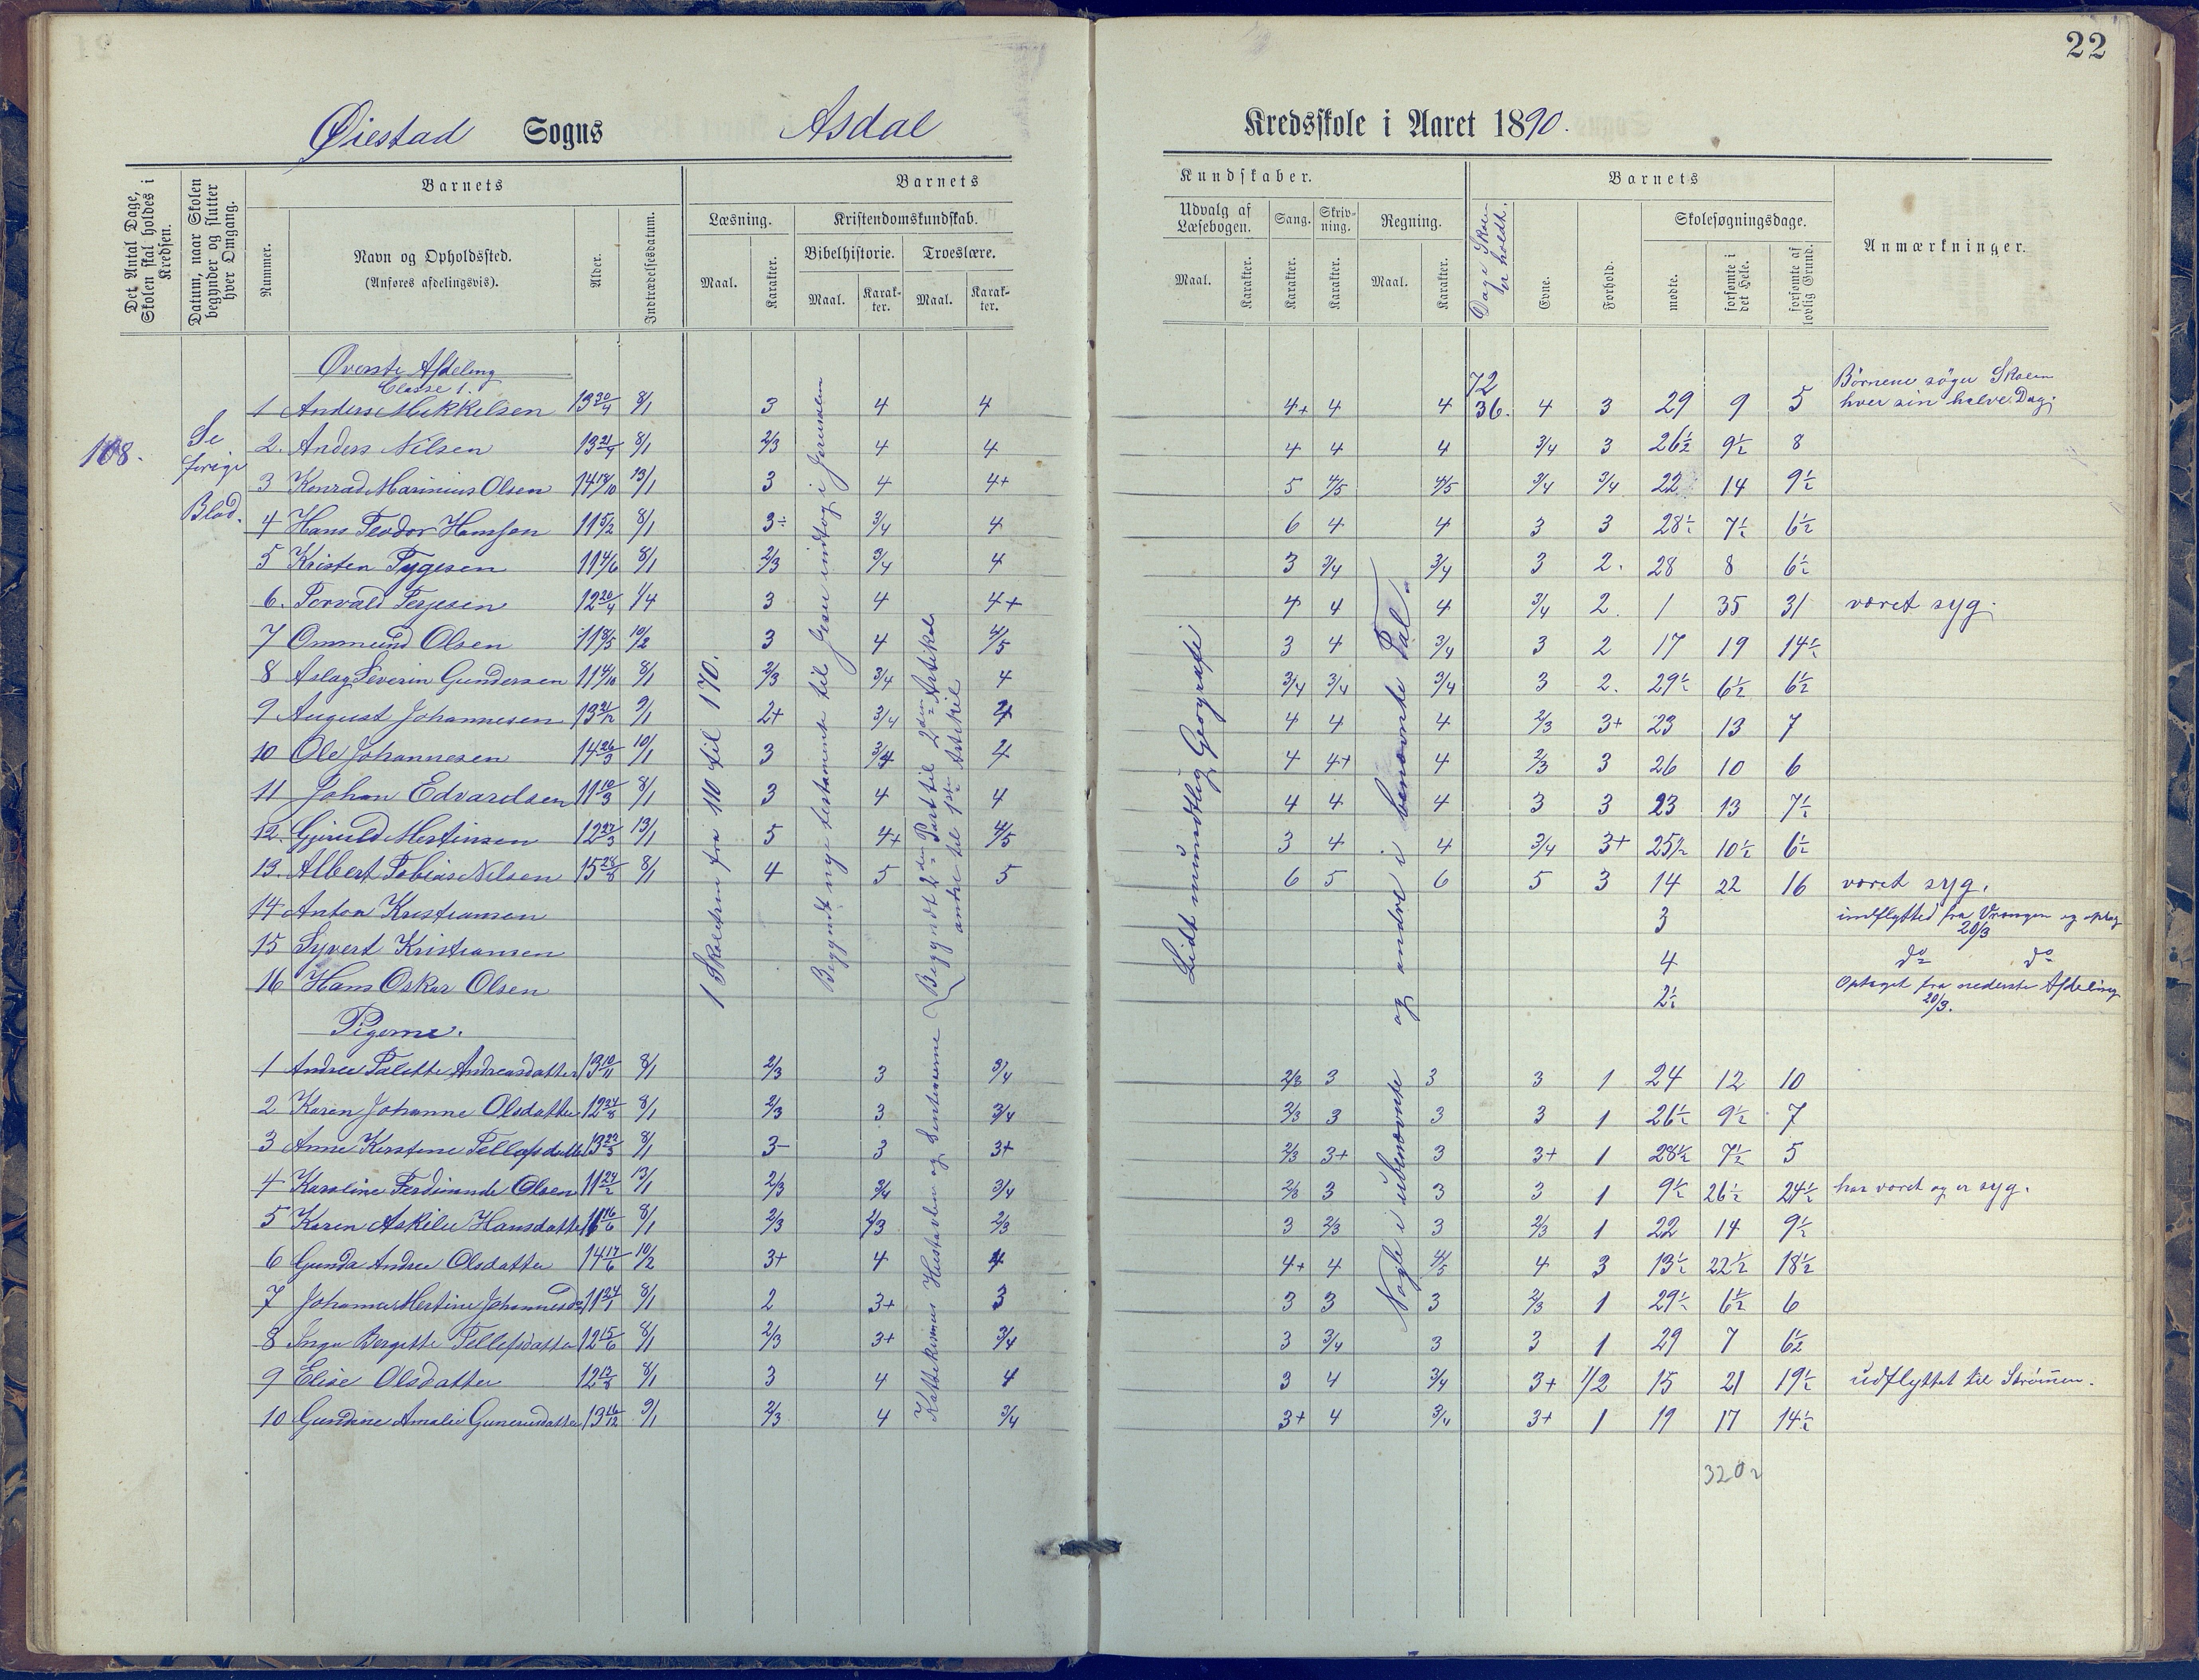 22
Øiestad Sogns Asdal Kredsskole i Aaret 1890.
Det Antal Dage, Skolen skal holdes i Kredsen.
Datum, naar Skolen begynder og slutter hver Omgang.
Barnets
Nummer.
Navn og Opholdssted.
(Anføres afdelingsvis).
Alder.
Indtrædelsesdatum.
Barnets
Læsning.
Kristendomskundskab.
Bibelhistorie. Troeslære.
Maal. Karakter. Maal. Karakter. Maal. Karakter.
Kundskaber.
Udvalg af Læsebogen. Sang. Skrivning. Regning.
Maal. Karakter. Karakter. Karakter. Maal. Karakter.
Dage Skolen er holdt.
Barnets
Evne. Forhold.
Skolesøgningsdage.
mødte. forsømte i det Hele. forsømte af lovlig Grund.
Anmærkninger.
108.
Se forige Blad.
Øverste Afdeling
Classe 1.
72
Børnene søger Skolen
1 Anders Mikkelsen 13 30/4 8/1 3 4 4 4+ 4 4 36. 4 3 29 9 5 hver sin halve Dag.
2. Anders Nilsen 13 21/4 8/1 2/3 4 4 4 4 4 3/4 3 26½ 9½ 8
3 Konrad Marinius Olsen 14 18/10 13/1 3 4 4+ 5 4/5 4/5 3/4 3/4 22 14 9½
4 Hans Teodor Hansen 11 5/2 8/1 3÷ 3/4 4 6 4 4 3 3 28½ 7½ 6½
5 Kristen Tygesen 11 4/6 8/1 2/3 3/4 4 3 3/4 3/4 3 2. 28 8 6½
6. Torvald Terjesen 12 20/4 1/4 3 4 4+ 4 4 4 3/4 2. 1 35 31 været syg.
7 Ommund Olsen 11 8/5 10/2 3 4 4/5 3 4 3/4 3 2 17 19 14½
8 Aslag Severin Gundersen 11 4/10 8/1 2/3 3/4 4 3/4 3/4 3/4 3 2. 29½ 6½ 6½
9 August Johannesen 13 21/12 9/1 2+ 3/4 4 4 4 4 2/3 3+ 23 13 7
10 Ole Johannesen 14 26/3 10/1 3 3/4 4 4 4+ 4 2/3 3 26 10 6
11 Johan Edvardsen 11 10/3 8/1 3 4 4 4 4 4 3 3 23 13 7½
12. Gjeruld Mertinsen 12 27/3 13/1 5 4+ 4/5 3 4 4 3/4 3+ 25½ 10½ 6½
13. Albert Tobias Nilsen 15 28/8 8/1 4 5 5 6 5 6 5 3 14 22 16 været syg.
14 Anton Kristiansen 3 indflytted fra Vrangen og optag 20/3
15 Syvert Kristiansen 4 do do
16 Hans Oskar Olsen 2½ Optaget fra nederste Afdeling 20/3.
Pigerne.
1 Andrea Talette Andreasdatter 13 10/11 8/1 2/3 3 3/4 2/3 3 3 3 1 24 12 10
2 Karen Johanne Olsdatter 12 24/8 8/1 2/3 3 3/4 2/3 3 3 3 1 26½ 9½ 7
3 Anne Kirstine Tellefsdatter 13 22/3 8/1 3- 3 3+ 2/3 3+ 3 3+ 1 28½ 7½ 5
4 Karoline Ferdinande Olsen 11 24/2 13/1 2/3 3/4 3/4 2/3 3 3 3 1 9½ 26½ 24½ har været og er syg.
5 Karen Askilie Hansdatter 11 16/6 8/1 2/3 2/3 2/3 3 2/3 3 2/3 1 22 14 9½
6 Gunda Andrea Olsdatter 14 17/6 10/2 3+ 4 4 4+ 4 4/5 4 3 13½ 22½ 18½
7 Johanne Mertine Johannesd. 11 24/1 8/1 2 3+ 3 3 3 3 2/3 1 29½ 6½ 6
8 Inga Bergitte Tellefsdatter 12 15/6 8/1 2/3 3+ 3/4 3 3/4 3 3 1 29 7 6½
9 Elise Olsdatter 12 12/8 8/1 3 4 4 3 4 3/4 3+ 1/2 15 21 19½ udflyttet til Strømmen.
10 Gundine Amalie Gunerusdatter 13 16/12 9/1 2/3 4 3/4 3+ 4 3/4 3+ 1 19 17 14½
320½
I Skoletren fra 110 til 170.
Begyndt nye testamente til Jesu indtog i Jerusalem
Katekismus Hustavlen og Sentenserne
Begyndt 2den Part til 2den Artikel
andre til 1ste Artikel
Lidt mundtlig Geografi
Nogle i ubenævnte og andre i benævnte Tal.